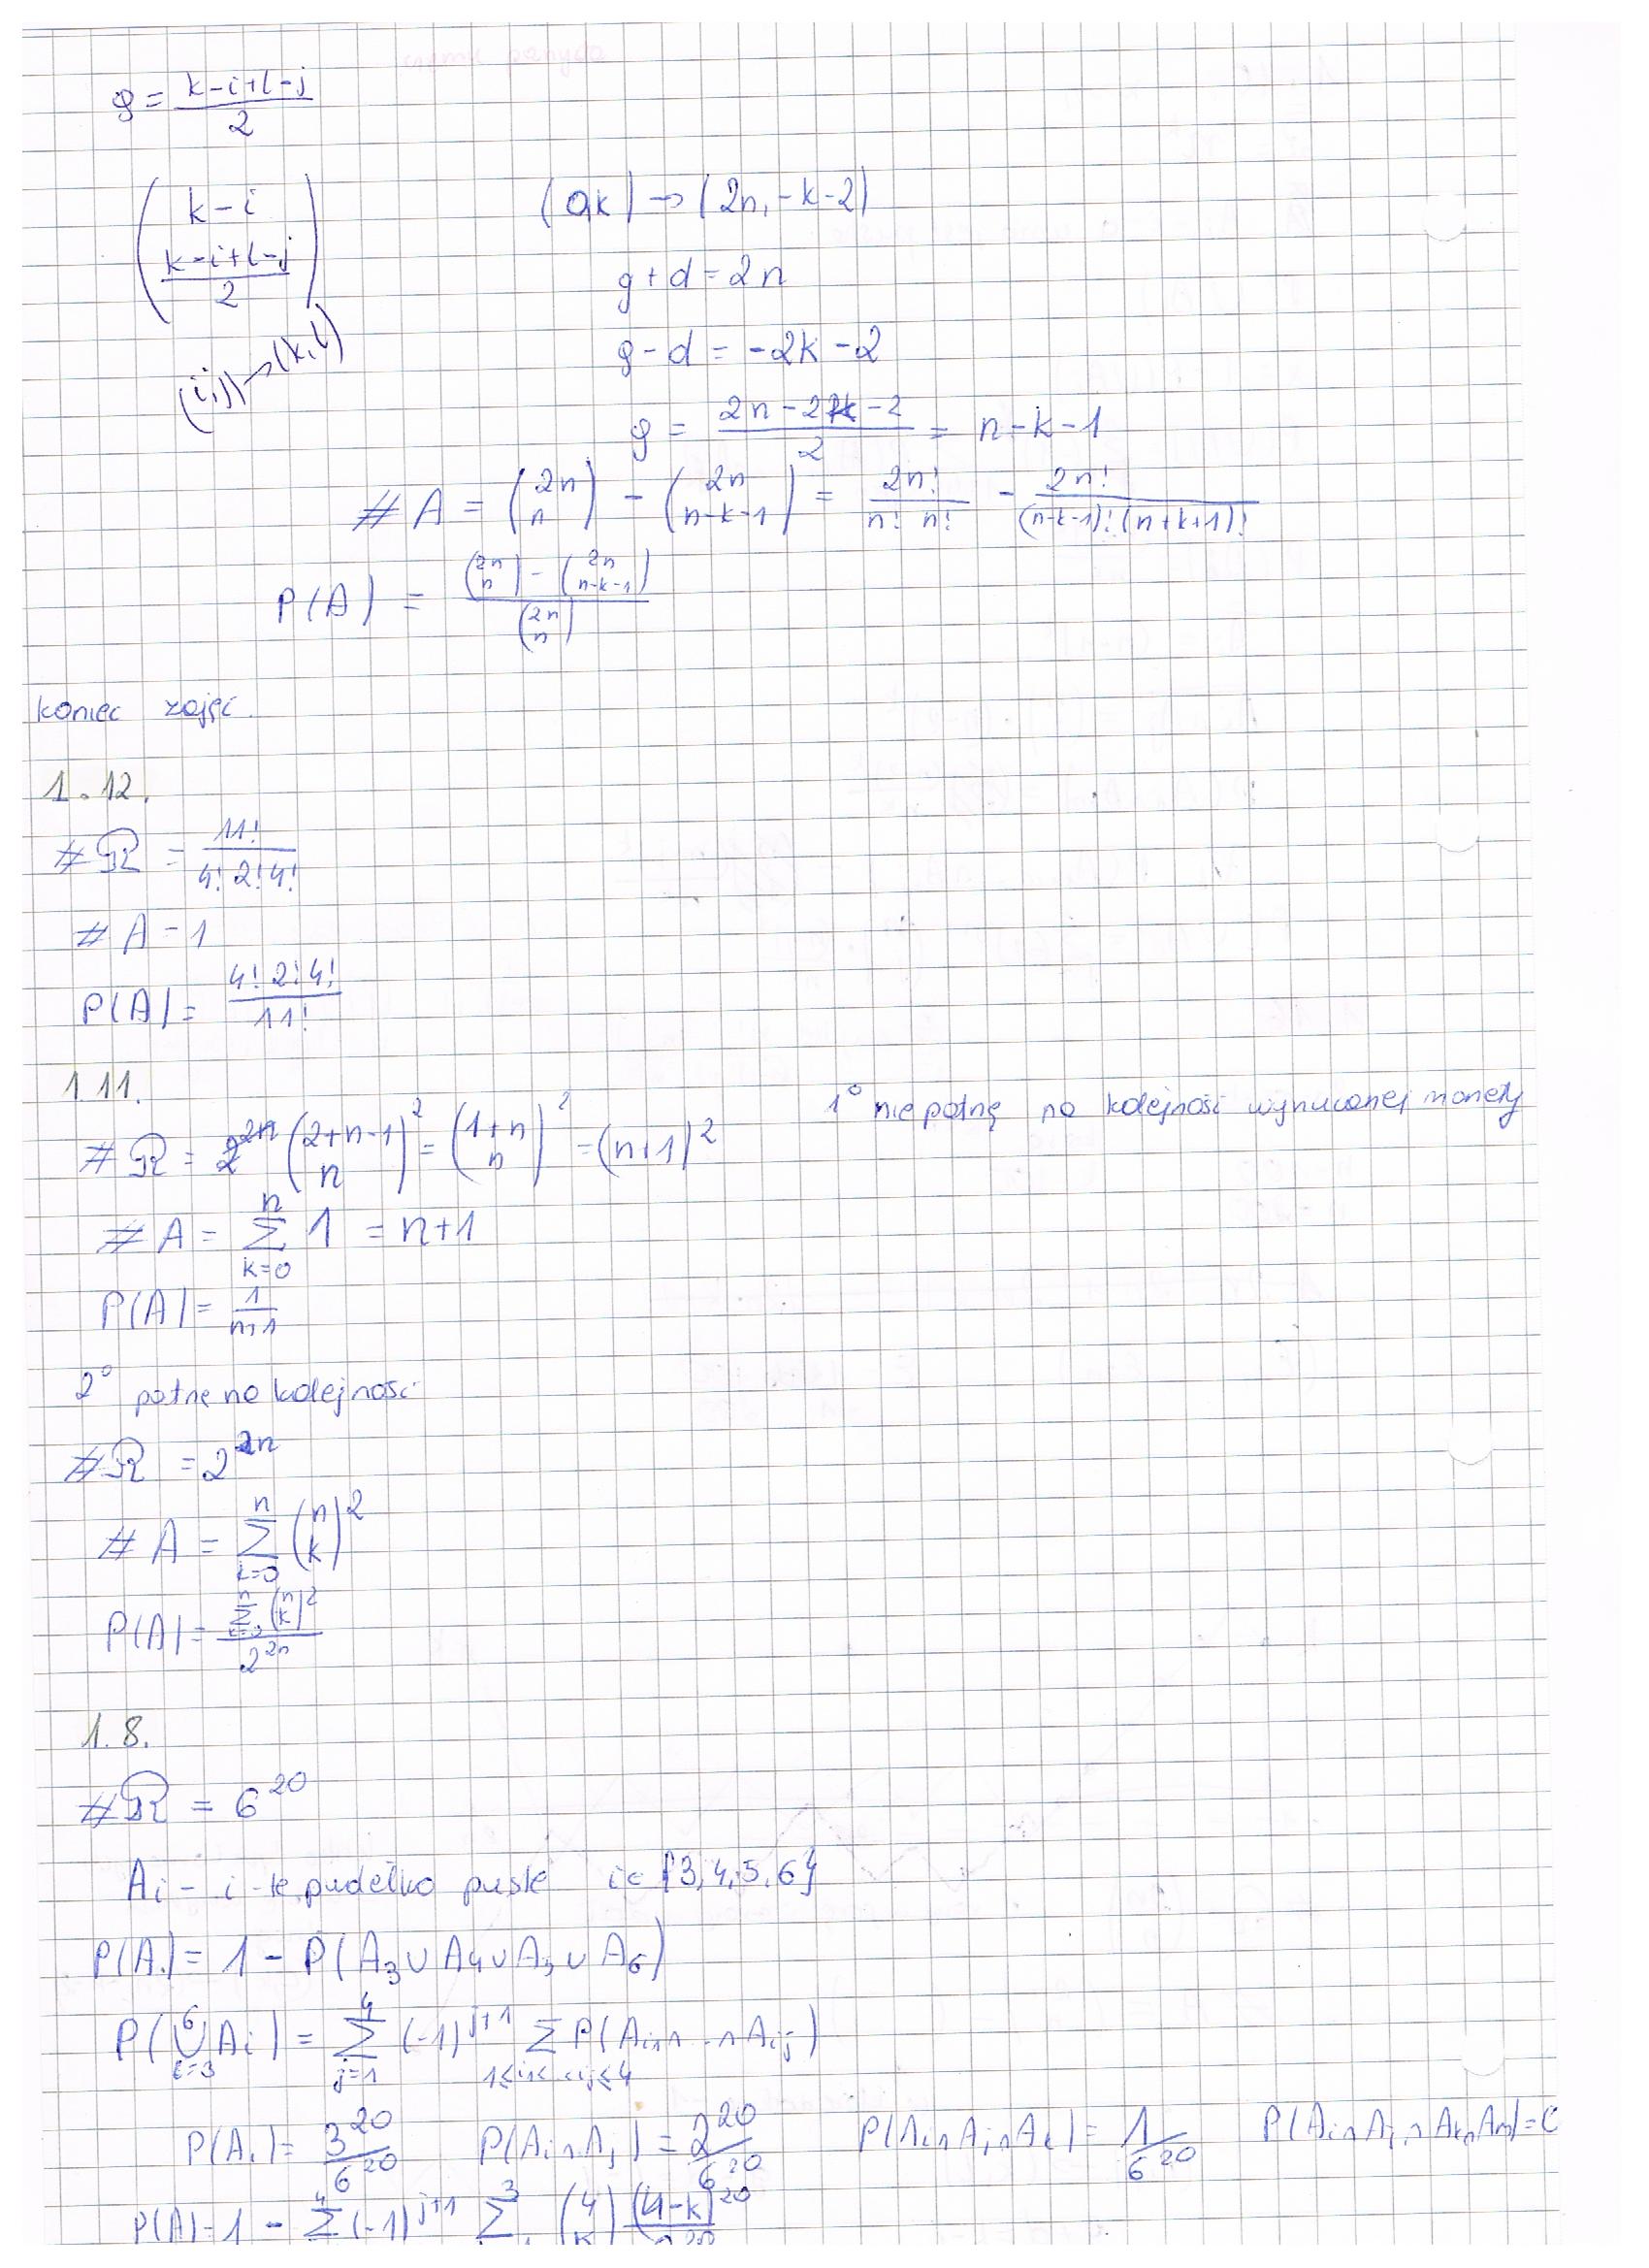 g = (k-i+l-j)/2
(k-i \over (k-i+l-j)/2)
(i,j) → (k,l)
(0,k) → (2n, -k-2)
g + d = 2n
g - d = -2k - 2
g = (2n - 2k - 2)/2 = n - k - 1
# A = (2n \over n) - (2n \over n-k-1) = 2n!/(n! n!) - 2n!/((n-k-1)! (n+k+1)!)
P(A) = ((2n \over n) - (2n \over n-k-1))/(2n \over n)
koniec zajęć.
1.12.
# Ω = 11!/(4! 2! 4!)
# A = 1
P(A) = 4! 2! 4!/11!
1.11.
1° nie patrzę na kolejność wyrzuconej monety
# Ω = (2+n-1 \over n)² = (1+n \over n)² = (n+1)²
# A = ∑_{k=0}^{n} 1 = n+1
P(A) = 1/(n+1)
2° patrzę na kolejność
# Ω = 2^{2n}
# A = ∑_{k=0}^{n} (n \over k)²
P(A) = ∑_{k=0}^{n} (n \over k)² / 2^{2n}
1.8.
# Ω = 6^{20}
A_i - i-te pudełko puste i ∈ {3,4,5,6}
P(A.) = 1 - P(A_3 ∪ A_4 ∪ A_5 ∪ A_6)
P(⋃_{i=3}^{6} A_i) = ∑_{j=1}^{4} (-1)^{j+1} ∑_{1≤i_1<...<i_j≤4} P(A_{i_1} ∩ ... ∩ A_{i_j})
P(A_i) = 3^{20}/6^{20} P(A_i ∩ A_j) = 2^{20}/6^{20} P(A_i ∩ A_j ∩ A_k) = 1/6^{20} P(A_i ∩ A_j ∩ A_k ∩ A_m) = 0
P(A) = 1 - ∑^{4} (-1)^{j+1} ∑^{3} (4 \over k) (4-k)^{20}